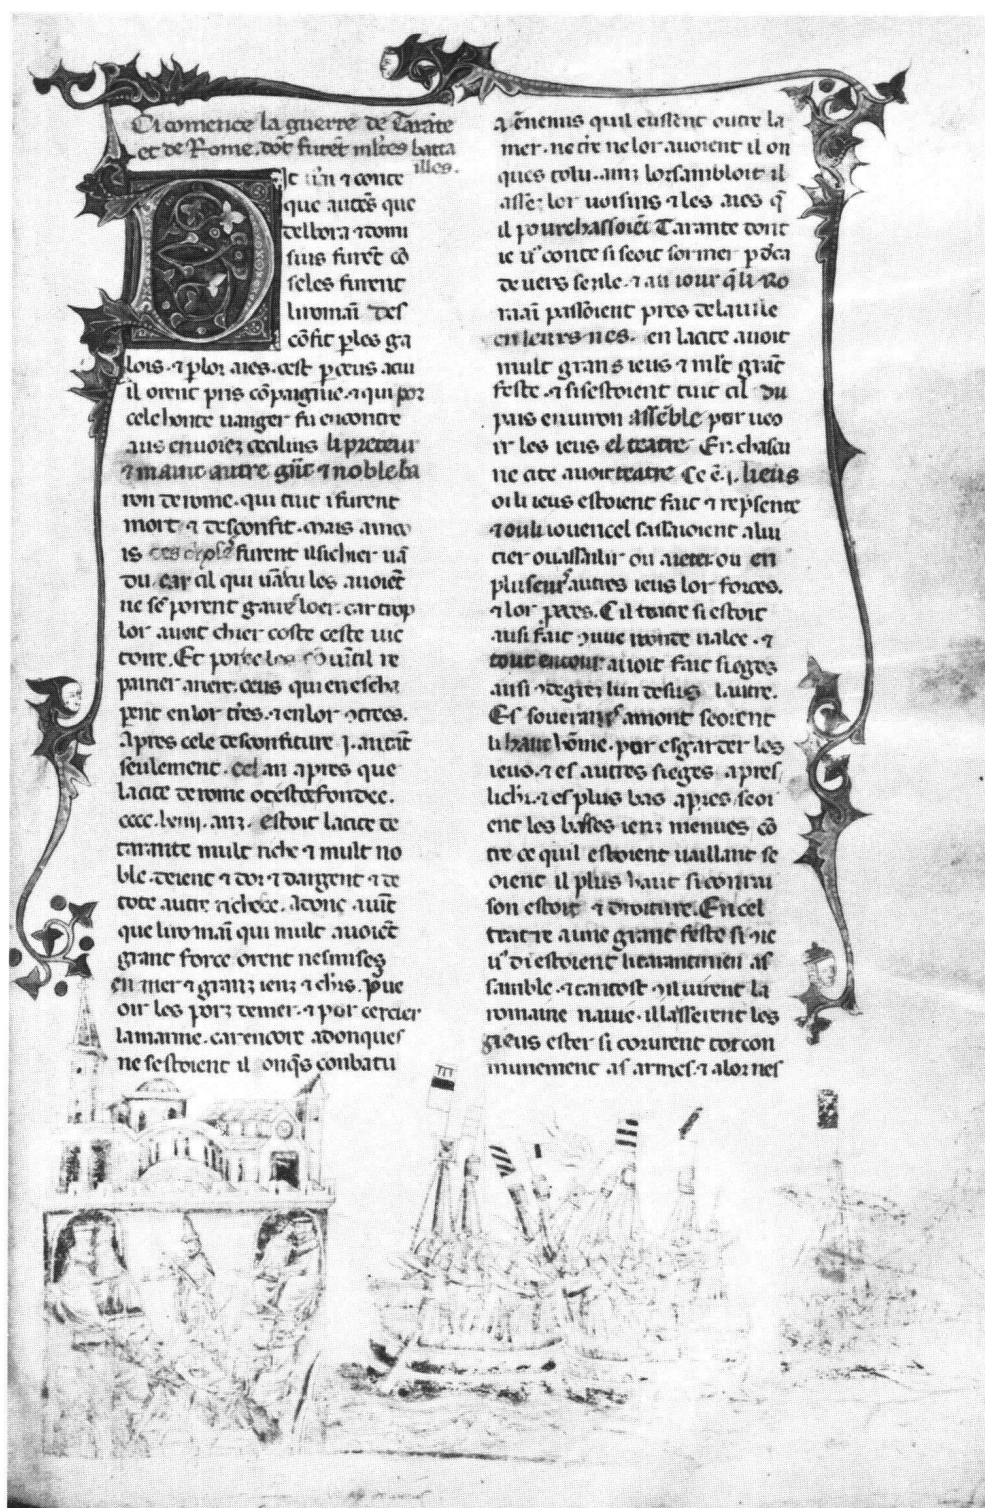 Ci comence la guerre de Tarãte
et de Rome. dõt furẽt mltes batta
illes.
que autres que
dellora ⁊ domi
sius furẽt cõ
seles furent
li romaĩ des
cõfit p les ga
lois. ⁊ p lor aies. cest p ceus a cui
il orent pris cõpaignie. ⁊ qui por
cele honte uanger fu encontre
aus enuoiez cecilius li preteur
⁊ maint autre ⁊ noble ba
ron de rome. qui tuit i furent
mort ⁊ desconfit. mais ainco
is furent il
du car cil qui les auoiẽt
ne se porent loer. car trop
lor auoit chier coste ceste uic
toire. Et por ce les
pairier ariere. ceus qui en escha
perent en lor t̃res. ⁊ en lor
Apres cele desconfiture .j. an tãt
seulement. cel an apres que
la cite de rome ot este fondee.
cccc. lxiiij. anz. estoit la cite de
tarante mult riche ⁊ mult no
ble. ⁊ dor ⁊ dargent ⁊ de
tote autre richece. Adonc auĩt
que li romaĩ qui mult auoiẽt
grant force orent nes mises
en mer ⁊ granz genz ⁊ chrs. Por ue
oir les porz de mer. ⁊ por cercier
la marine. car encore adonques
ne sestoient il onqs conbatu
a gẽnemis quil eussent outre la
mer. ne t̃re ne lor auoient il on
ques tolu. ainz lor sambloit il
assez lor uoisins ⁊ les aies q̃
il pourchassoiẽt Tarante dont
ie us conte si seoit sor mer p deca
deuers sesile. ⁊ au iour q̃ li Ro
maĩ passoient pres de la uile
en leurs nes. en la cite auoit
mult grans ieus ⁊ mlt grãt
feste. ⁊ si sestoient tuit cil du
pais enuiron assẽble por ueo
ir les ieus el teatre En chascu
ne cite auoit teatre Ce ẽ .j. lieus
ou li ieus estoient fait ⁊ represente
⁊ ou li iouencel sassaioient a lui
tier ou assaillir ou a ieter ou en
pluseurs autres ieus lor forces.
⁊ lor Cil teatre si estoit
ausi fait 9me ronde ualee. ⁊
tout entour auoit fait sieges
ausi 9 degrez lun desus lautre.
Es souerains amont seoient
li haut hõme. por esgarder les
ieus. ⁊ es autres sieges apres
li chr. ⁊ es plus bas apres seoi
ent les basses genz menues cõ
tre ce quil estoient uaillant se
oient il plus haut si con rai
son estoit ⁊ droiture. En cel
teatre a une grant feste si 9 ie
us di estoient li tarantinien as
samble. ⁊ tantost 9 il uirent la
romaine nauie. il lassierent les
gieus ester si corurent tot con
munement as armes. ⁊ a lor nes